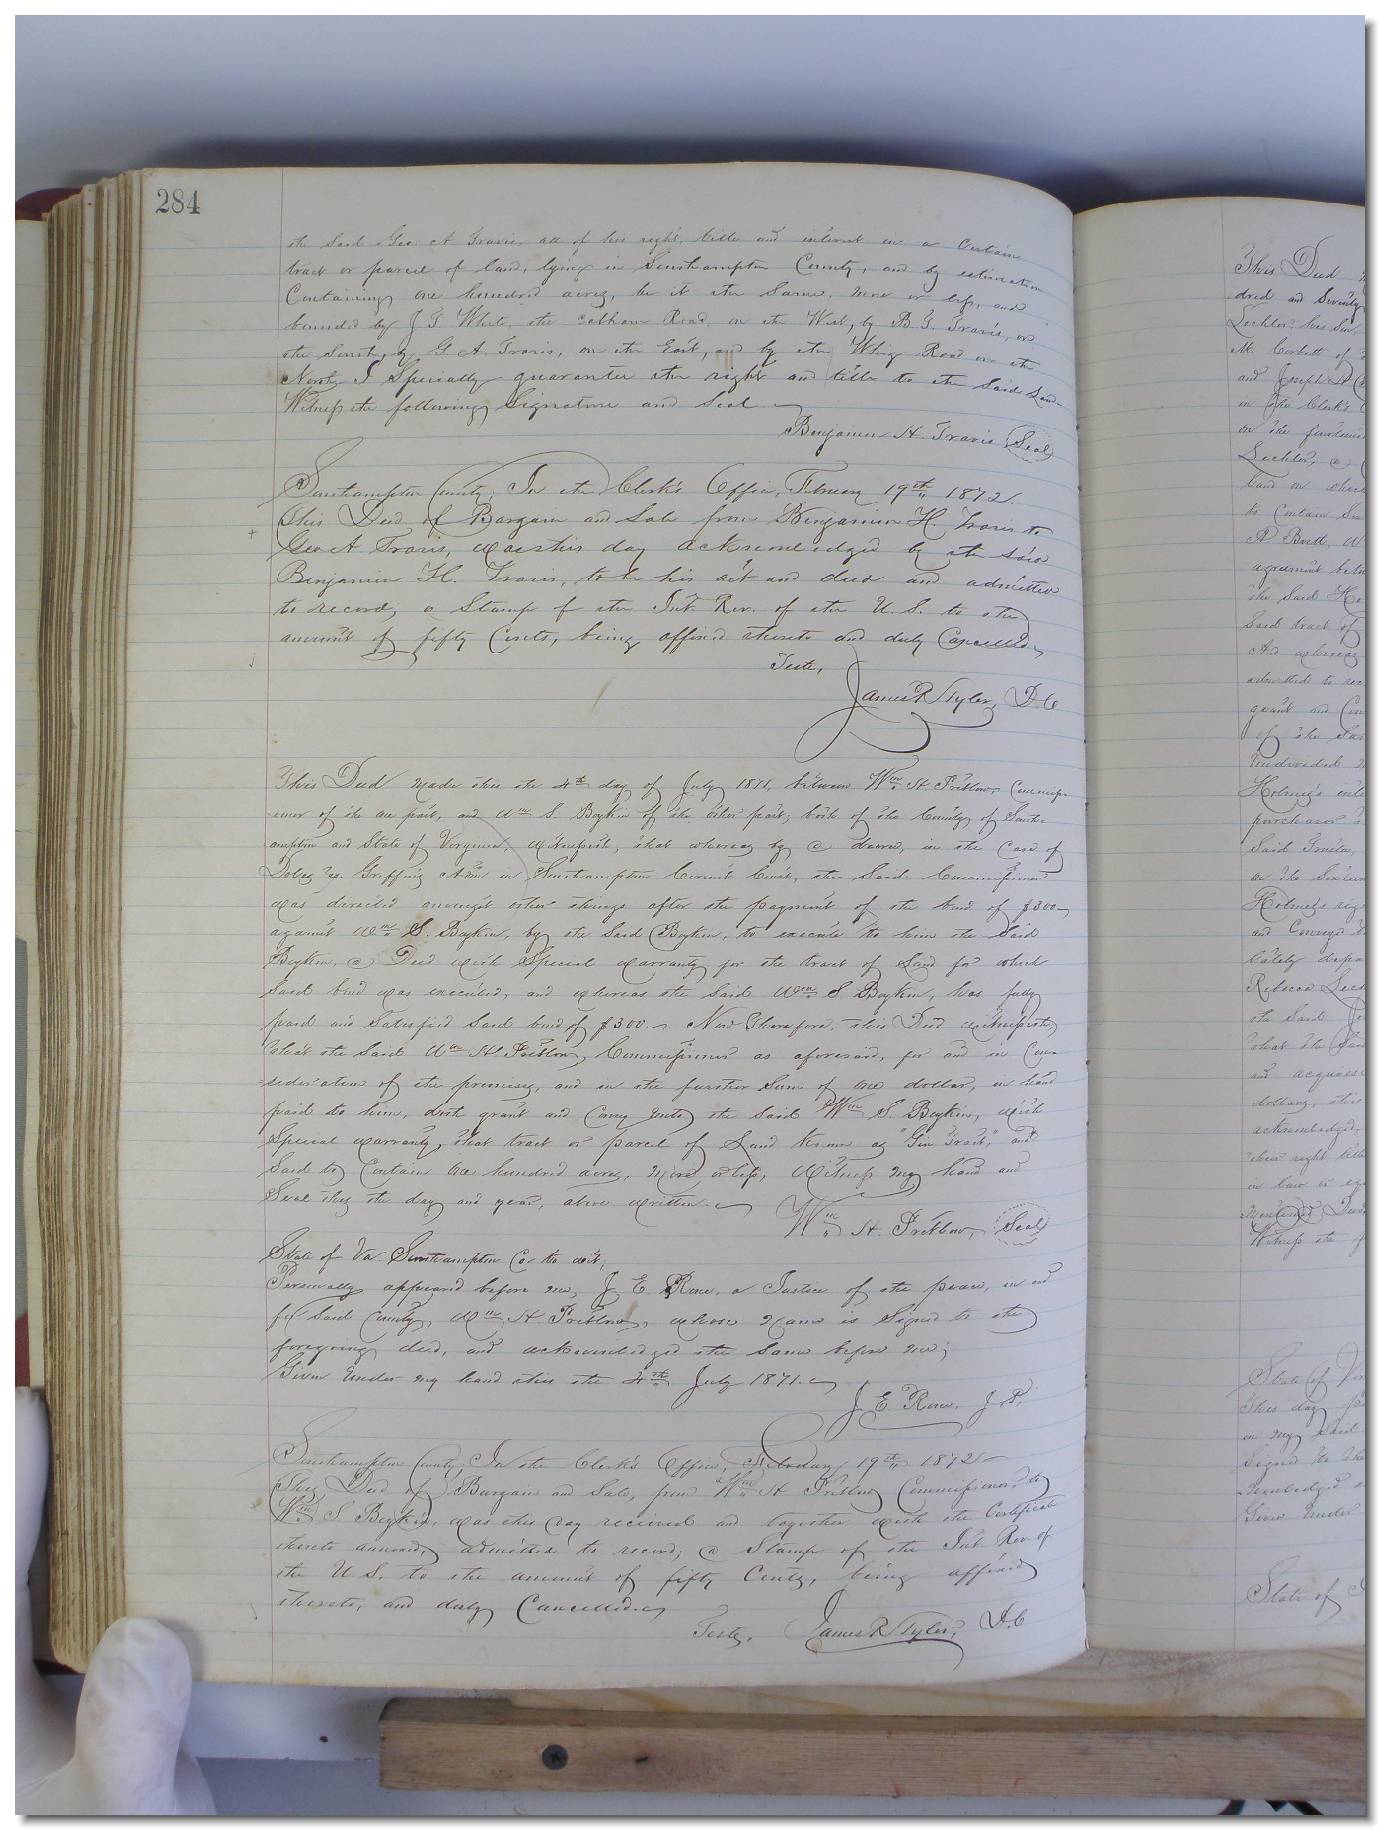 284
the said Geo A Travis, all of his right, title and interest in a Certain
tract or parcel of land, lying in Southampton County, and by estimation
Containing one hundred acres, be it the Same, more or less, and
bounded by J G White, the Road on the West, by B. G. Travis, on
the South, by G. A. Travis, on the East, and by the Whig Road on the
North, I Specially guarantee the right and title to the Said Land
Witness the following Signature and Seal
Benjamin H. Travis Seal
Southampton County; In the Clerk's Office, February 19th 1872.
This Deed of Bargain and Sale from Benjamin H. Travis to
Geo A Travis, was this day acknowledged by the said
Benjamin H. Travis, to be his act and deed and admitted
to record, a Stamp of the Int. Rev. of the U. S. to the
amount of fifty Cents, being affixed thereto and duly Cancelled
Teste,
James R Tyler, D. C
This Deed made this the 4th day of July 1871, between Wm H. Pretlow, Commiss-
-ioner of the one part, and Wm S Boykin of the other part; both of the County of South-
ampton and State of Virginia, Witnesseth, that whereas by a decree, in the Case of
Doles vs. Griffin's Admr in Southampton Circuit Court, the Said Commissioner
was directed amongst other things after the payment of the bond of $300
against Wm S. Boykin, by the Said Boykin, to execute to him the Said
Boykin, a Deed with Special warranty for the tract of Land for which
Said bond was executed, and whereas the Said Wm S Boykin, has fully
paid and Satisfied Said bond of $300. Now Therefore, this Deed witnesseth,
that the Said Wm H. Pretlow, Commissioner as aforesaid, for and in Con-
-sideration of the premises, and in the further Sum of one dollar, in hand
paid to him, doth grant and Convey unto the Said Wm S. Boykin, with
Special warranty, that tract or parcel of Land known as "Gin Tract," and
Said to Contain One hundred acres, more or less, Witness my hand and
Seal this the day and year, above written.
Wm H. Pretlow, Seal
State of Va. Southampton Co to wit;
Personally appeared before me, J. E. Rose, a Justice of the peace, in and
for Said County, Wm H Pretlow, whose name is Signed to the
foregoing deed, and acknowledged the Same before me;
Given Under my hand this the 4th July 1871.
J. E. Rose, J. P.
Southampton County; In the Clerk's Office, February 19th 1872
This Deed of Bargain and Sale, from Wm H Pretlow Commissioner, to
Wm S Boykin, was this day received and together with the Certificate
thereto annexed, admitted to record; a Stamp of the Int. Rev. of
the U S. to the amount of fifty Cents, being affixed
thereto, and duly Cancelled.
Teste, James R Tyler, D. C
This Deed
dred and Seventy
M. Corbett of
and Joseph
in the Clerk's
on the
land on which
to Contain
agreement
the Said
Said tract of
And whereas
admitted to rec
grant and
of the
undivided
purchaser
Said
on the
and Convey
Rebecca
the Said
that the
and acquies
dollars,
acknowledged,
their right title
in law or eq
Witness the
State of
This day
in my Said
Signed to the
Given under
State of